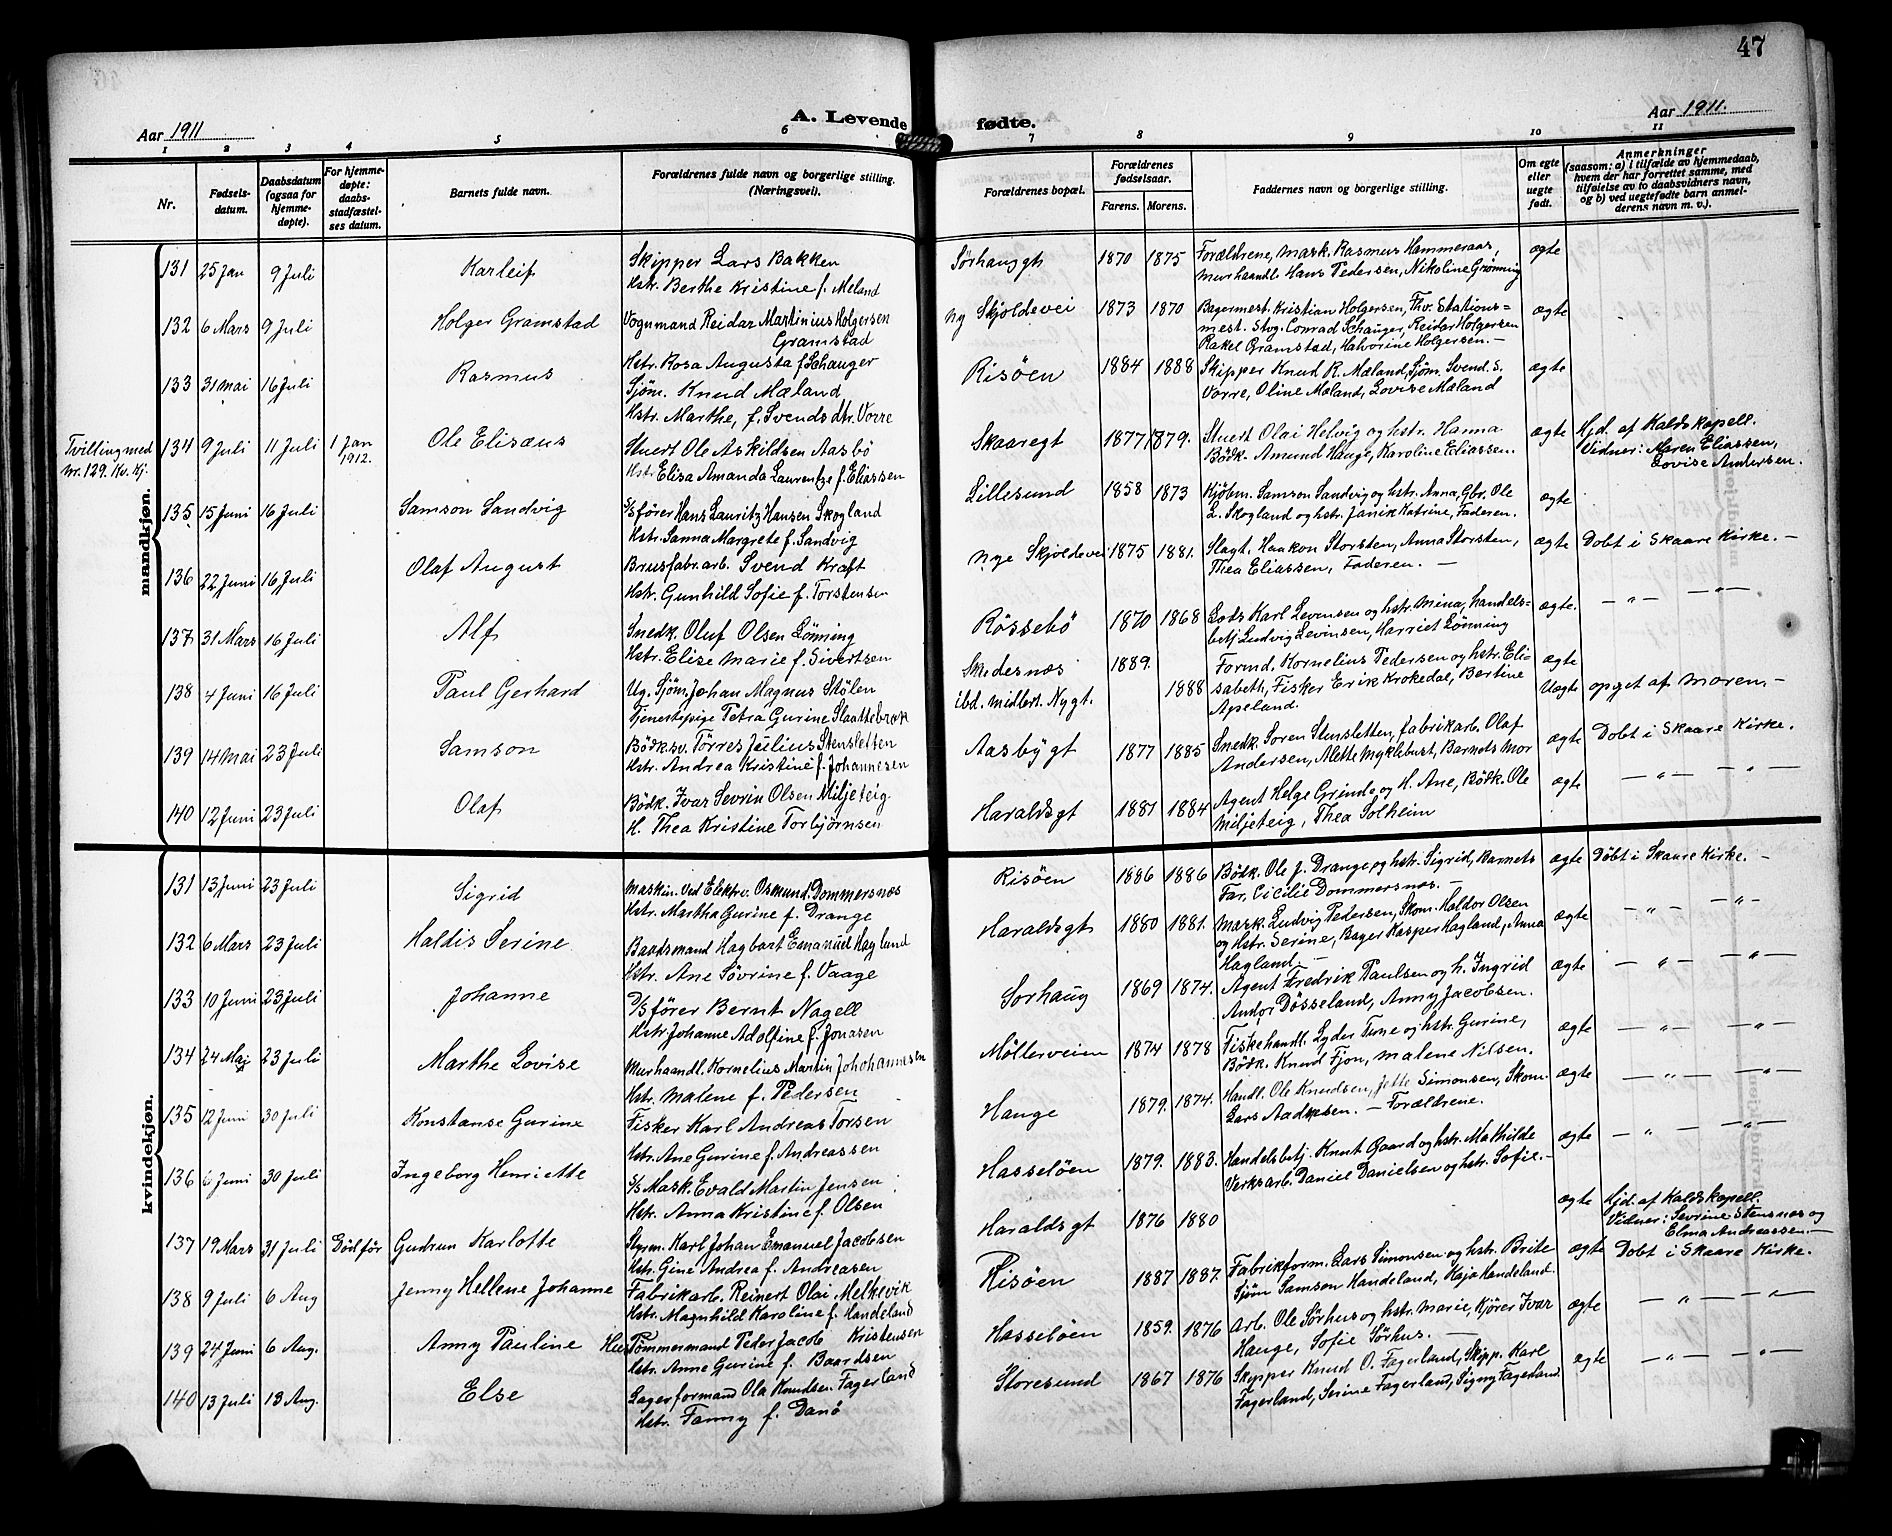 47
Aar 1911
A. Levende fødte.
Aar 1911.
1 2 3 4 5 6 7 8 9 10 11
Nr.
Fødsels-
datum.
Daabsdatum
(ogsaa for
hjemme-
døpte).
For hjemme-
døpte:
daabs-
stadfæstel-
ses datum.
Barnets fulde navn.
Forældrenes fulde navn og borgerlige stilling.
(Næringsvei).
Forældrenes bopæl.
Forældrenes
fødselsaar.
Farens. Morens.
Faddernes navn og borgerlige stilling.
Om egte
eller
uegte
født.
Anmerkninger
(saasom: a) i tilfælde av hjemmedaab,
hvem der har forrettet samme, med
tilføielse av to daabsvidners navn,
og b) ved uegtefødte barn anmel-
derens navn m. v.).
mandkjøn.
131 25 Jan 9 Juli Karleif
Skipper Lars Bakken
Hstr. Berthe Kristine f. Meland
Sørhauggt 1870 1875
Forældrene, Mask. Rasmus Hammeraas,
Murhaandl. Hans Pedersen, Nikoline Grønning
ægte
132 6 Mars 9 Juli Holger Gramstad
Vognmand Reidar Martinius Holgersen
Gramstad
Hstr. Rosa Augusta f. Schauger
ny Skjoldevei 1873 1870
Bagermest. Kristian Holgersen, Fhv. Stations=
mest. Stvg. Conrad Schauger, Reidar Holgersen
Rakel Gramstad, Halvorine Holgersen. —
ægte
133 31 Mai 16 Juli Rasmus
Sjøm. Knud Mæland
Hstr. Marthe, f. Svendsdtr. Vorre
Risöen 1884 1888
Skipper Knud R. Mæland, Sjøm. Svend S.
Vorre, Oline Mæland, Lovise Mæland
ægte
Tvilling med
nr. 129. Kv. Kj.
134 9 Juli 11 Juli 1 Jan
1912.
Ole Elisæus
Stuert Ole Askildsen Aasbö
Hst. Elisa Amanda Laurentze f. Eliassen
Skaaregt 1877 1879.
Stuert Olai Helvig og hstr. Hanna
Bödk. Amund Hauge, Karoline Eliassen.
ægte
Hjd. af Kaldskapell.
Vidner: Maren Eliassen,
Lovise Andersen.
135 15 Juni 16 Juli Samson Sandvig
S/S fører Hans Lauritz Hansen Skogland
Hstr. Sanna Margrete f. Sandvig
Lillesund 1858 1873
Kjöbm. Samson Sandvig og hstr. Anna, Gbr. Ole
L. Skogland og hstr. Janik Katrine, Faderen.
ægte
136 22 Juni 16 Juli Olaf August
Brusfabr. arb. Svend Kraft
Hstr. Gunhild Sofie f. Torstensen
nye Skjoldevei 1875 1881.
Slagt. Haakon Storsten, Anna Storsten,
Thea Eliassen, Faderen. —
ægte Döbt i Skaare Kirke. —
137 31 Mars 16 Juli Alf
Snedk. Oluf Olsen Lönning
Hstr. Elise Marie f. Sivertsen
Røssebö 1870 1868
Lods Karl Levensen og hstr. Mina, handels=
betj. Ludvig Levinsen, Harriet Lønning
ægte. — „ — — „ —
138 4 Juni 16 Juli Paul Gerhard
Ug. Sjøm. Johan Magnus Stölen
Tjenestepige Petra Gurine Slaattebræk
Skudesnæs 1889.
ibd. midlert. Nygt. 1888
Formd. Kornelius Pedersen og hstr. Eli=
sabeth, Fisker Erik Krokedal, Bertine
Apeland.
ægte
Uægte opget af moren. —
139 14 Mai 23 Juli Samson
Bödksv. Törres Julius Stensletten
Hstr. Andrea Kristine f. Johannesen
Aasbygt 1877 1885
Snedk. Soren Stensletten, fabrikarb. Olaf
Andersen, Alette Myklebust, Barnets Mor
ægte Döbt i Skaare Kirke.
140 12 Juni 23 Juli Olaf
Bödk. Ivar Sevrin Olsen Miljeteig
H. Thea Kristine Torbjörnsen
Haraldsgt 1881 1884
Agent Helge Grinde og H. Ane, Bödk. Ole
Miljeteig, Thea Solheim
ægte — „ — — „ —
kvindekjøn.
131 13 Juni 23 Juli Sigrid
Maskin. ved Elektrv. Osmund Dommersnæs
Hstr. Martha Gurine f. Drange
Risöen 1886 1886
Bödk. Ole J. Drange og hstr. Sigrid, Barnets
Far, Cicilie Dommersnæs. —
ægte Döbt i Skaare Kirke. —
132 6 Mars 23 Juli Haldis Serine
Baadsmand Hagbart Emanuel Hagland
Hstr. Ane Sövrine f. Vaage
Haraldsgt 1880 1881.
Mask. Ludvig Pedersen, Skom. Haldor Olsen
og Hstr. Serine, Bager Kasper Hagland, Anna
Hagland. —
ægte — „ — — „ —
133 10 Juni 23 Juli Johanne
D/S förer Bernt Nagell
Hstr. Johanne Adolfine f. Jonasen
Sorhaug 1869 1874.
Agent Fredrik Paulsen og h. Ingrid
Andor Dösseland, Anny Jacobsen.
ægte — „ — — „ —
134 24 Mai 23 Juli Marthe Lovise
Murhaandl. Kornelius Martin Johohannesen
Hstr. Malene f. Pedersen
Möllerveien 1874 1878
Fiskehandl. Lyder Tune og hstr. Gurine,
Bödk. Knud Fjon, Malene Nilsen.
ægte — „ — — „ —
135 12 Juni 30 Juli Konstanse Gurine
Fisker Karl Andreas Torsen
Hstr. Ane Gurine f. Andreassen
Hauge 1879. 1874.
Handl. Ole Knudsen, Jette Simonsen, Skom.
Lars Aadnesen. — Forældrene.
ægte — „ — — „ —
136 6 Juni 30 Juli Ingeborg Henriette
S/S Mask. Evald Martin Jensen
Hstr. Anna Kristine f. Olsen
Hasselöen 1879. 1883.
Handelsbetj. Knut Gaard og hstr. Mathilde
Verksarb. Daniel Danielsen og hstr. Sofie. —
ægte — „ — — „ —
137 19 Mars 31 Juli Död för Gudrun Karlotte
Styrm. Karl Johan Emanuel Jacobsen
Hstr. Gine Andrea f. Andreasen
Haraldsgt 1876 1880
ægte Hjd. af Kaldskapell.
Vidner: Sevrine Stensnæs og
Elma Andreassen. —
138 9 Juli 6 Aug Jenny Hellene Johanne
Fabrikarb. Reinert Olai Melkevik
Hstr. Magnhild Karoline f. Handeland
Risöen 1887 1887.
Fabrikform. Lars Simonsen og hstr. Brite
Sjøm Samson Handeland, Kaja Handeland.
ægte Döbt i Skaare Kirke.
139 24 Juni 6 Aug. Anny Pauline
Tömmermand Peder Jacob Kristensen
Hstr. Anne Gurine f. Baardsen
Hasselöen 1859. 1876
Arb. Ole Sörhus og hstr. Marie, Kjører Ivar
Hauge, Sofie Sörhus. —
ægte — „ — — „ —
140 13 Juli 13 Aug. Else
Lagerformand Ola Knudsen Fagerland
Hstr. Fanny f. Danö
Storesund 1867 1876
Skipper Knud O. Fagerland, Skipp. Karl
Fagerland, Serine Fagerland, Signy Fagerland.
ægte — „ — — „ —